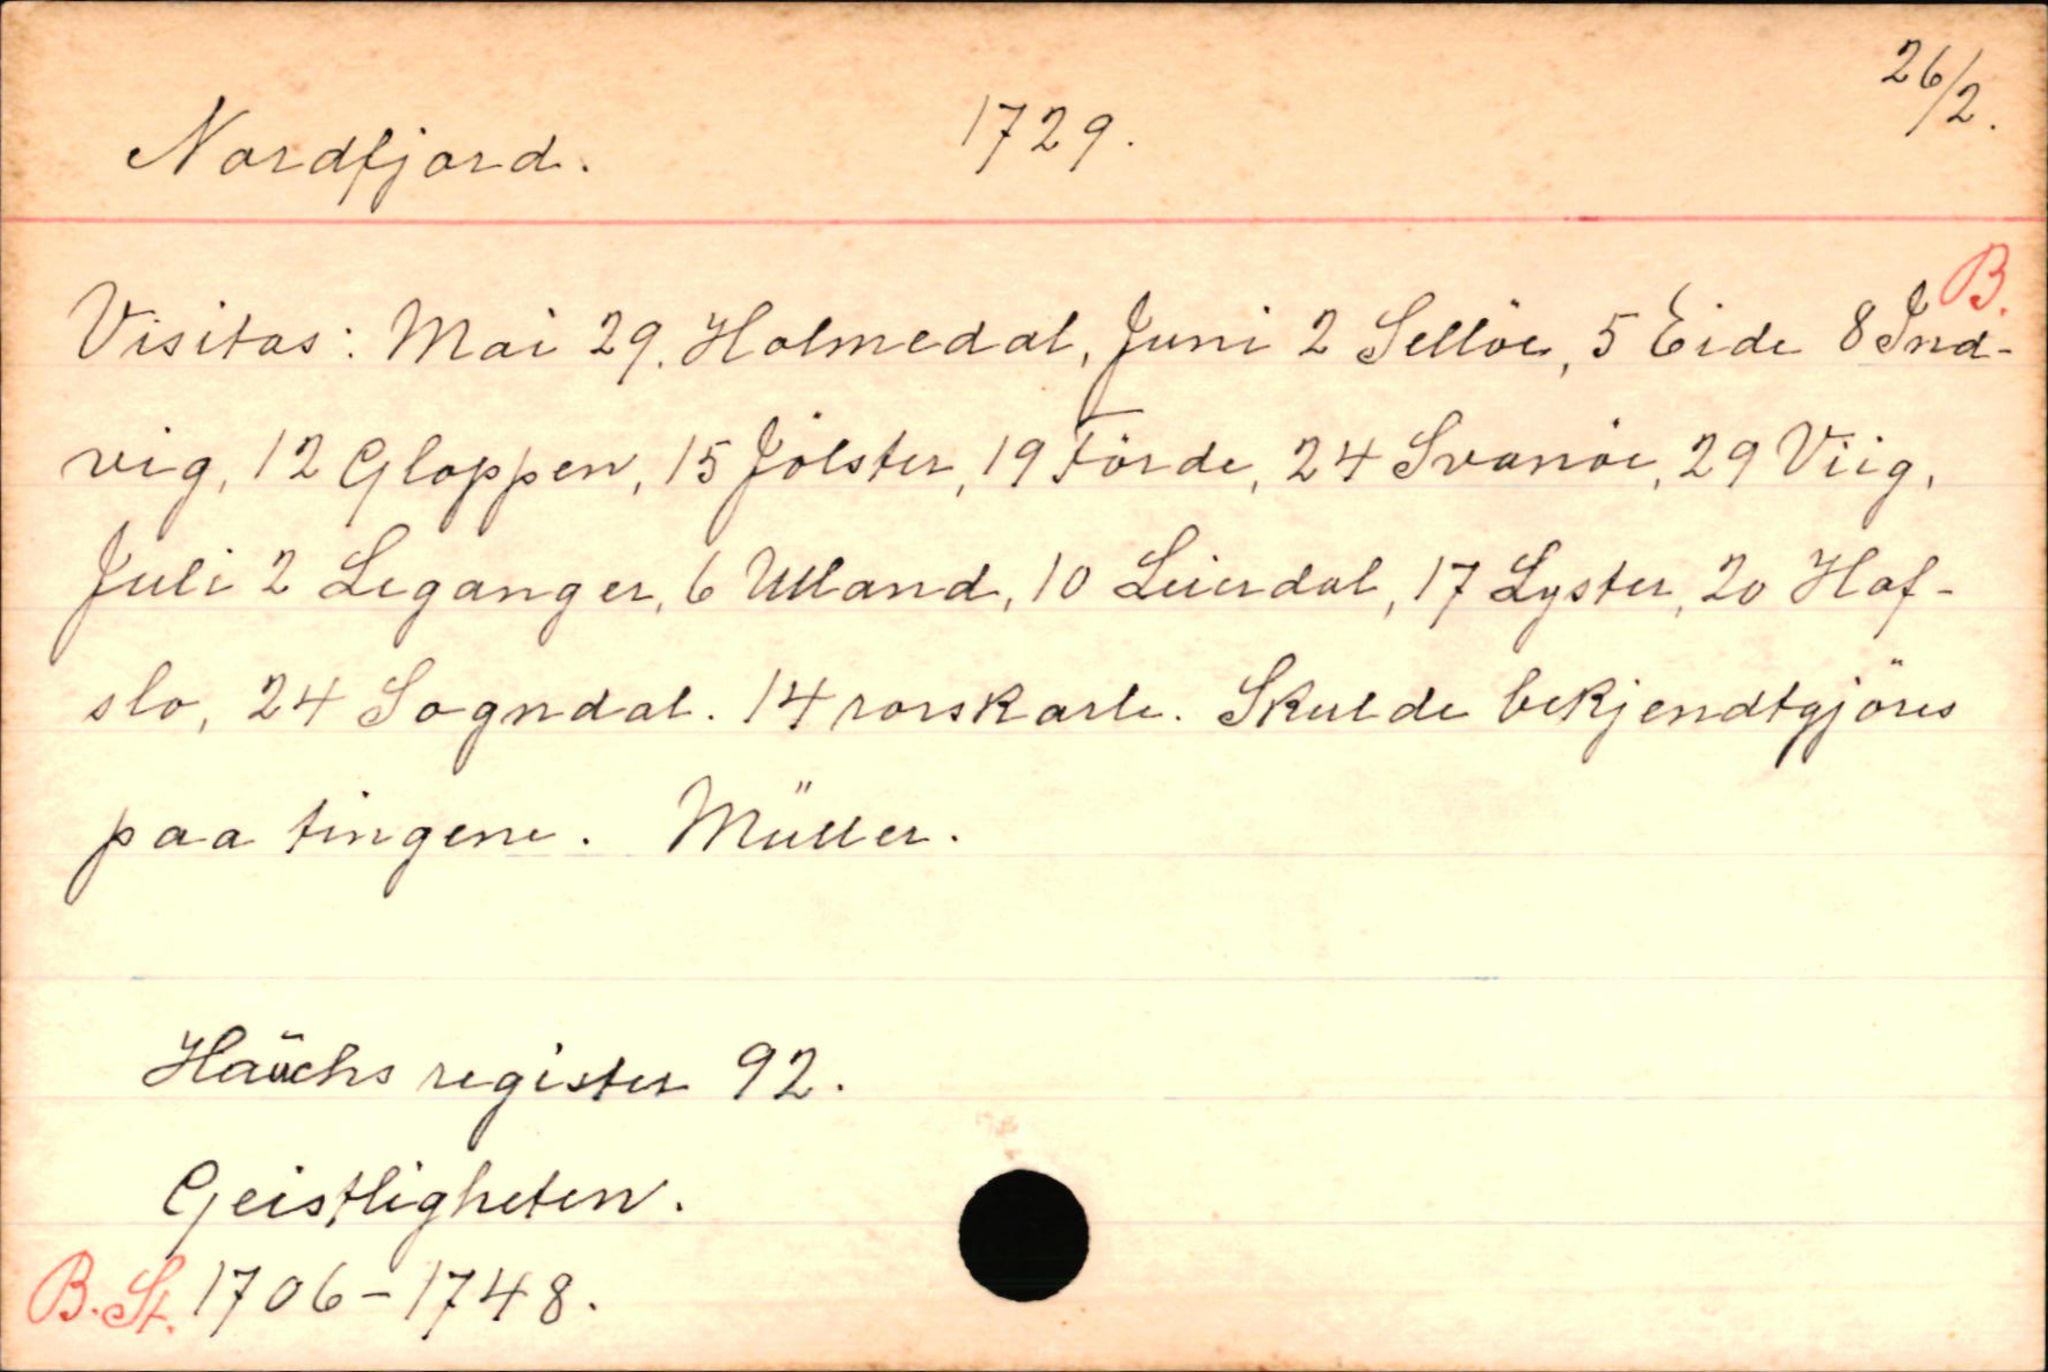 Nordfjord. 1729. 26/2.
B.
Visitas: Mai 29. Holmedal, Juni 2 Sellöe, 5 Eide 8 Ind-
vig, 12 Gloppen, 15 Jölster, 19 Förde, 24 Svanöe, 29 Viig,
Juli 2 Leganger, 6 Uland, 10 Leierdal, 17 Lyster, 20 Haf-
slo, 24 Sogndal. 14 rorskarle. Skulde bekjendtgjöres
paa tingene. Müller.
Haüchs register 92.
Geistligheten.
B. St. 1706-1748.